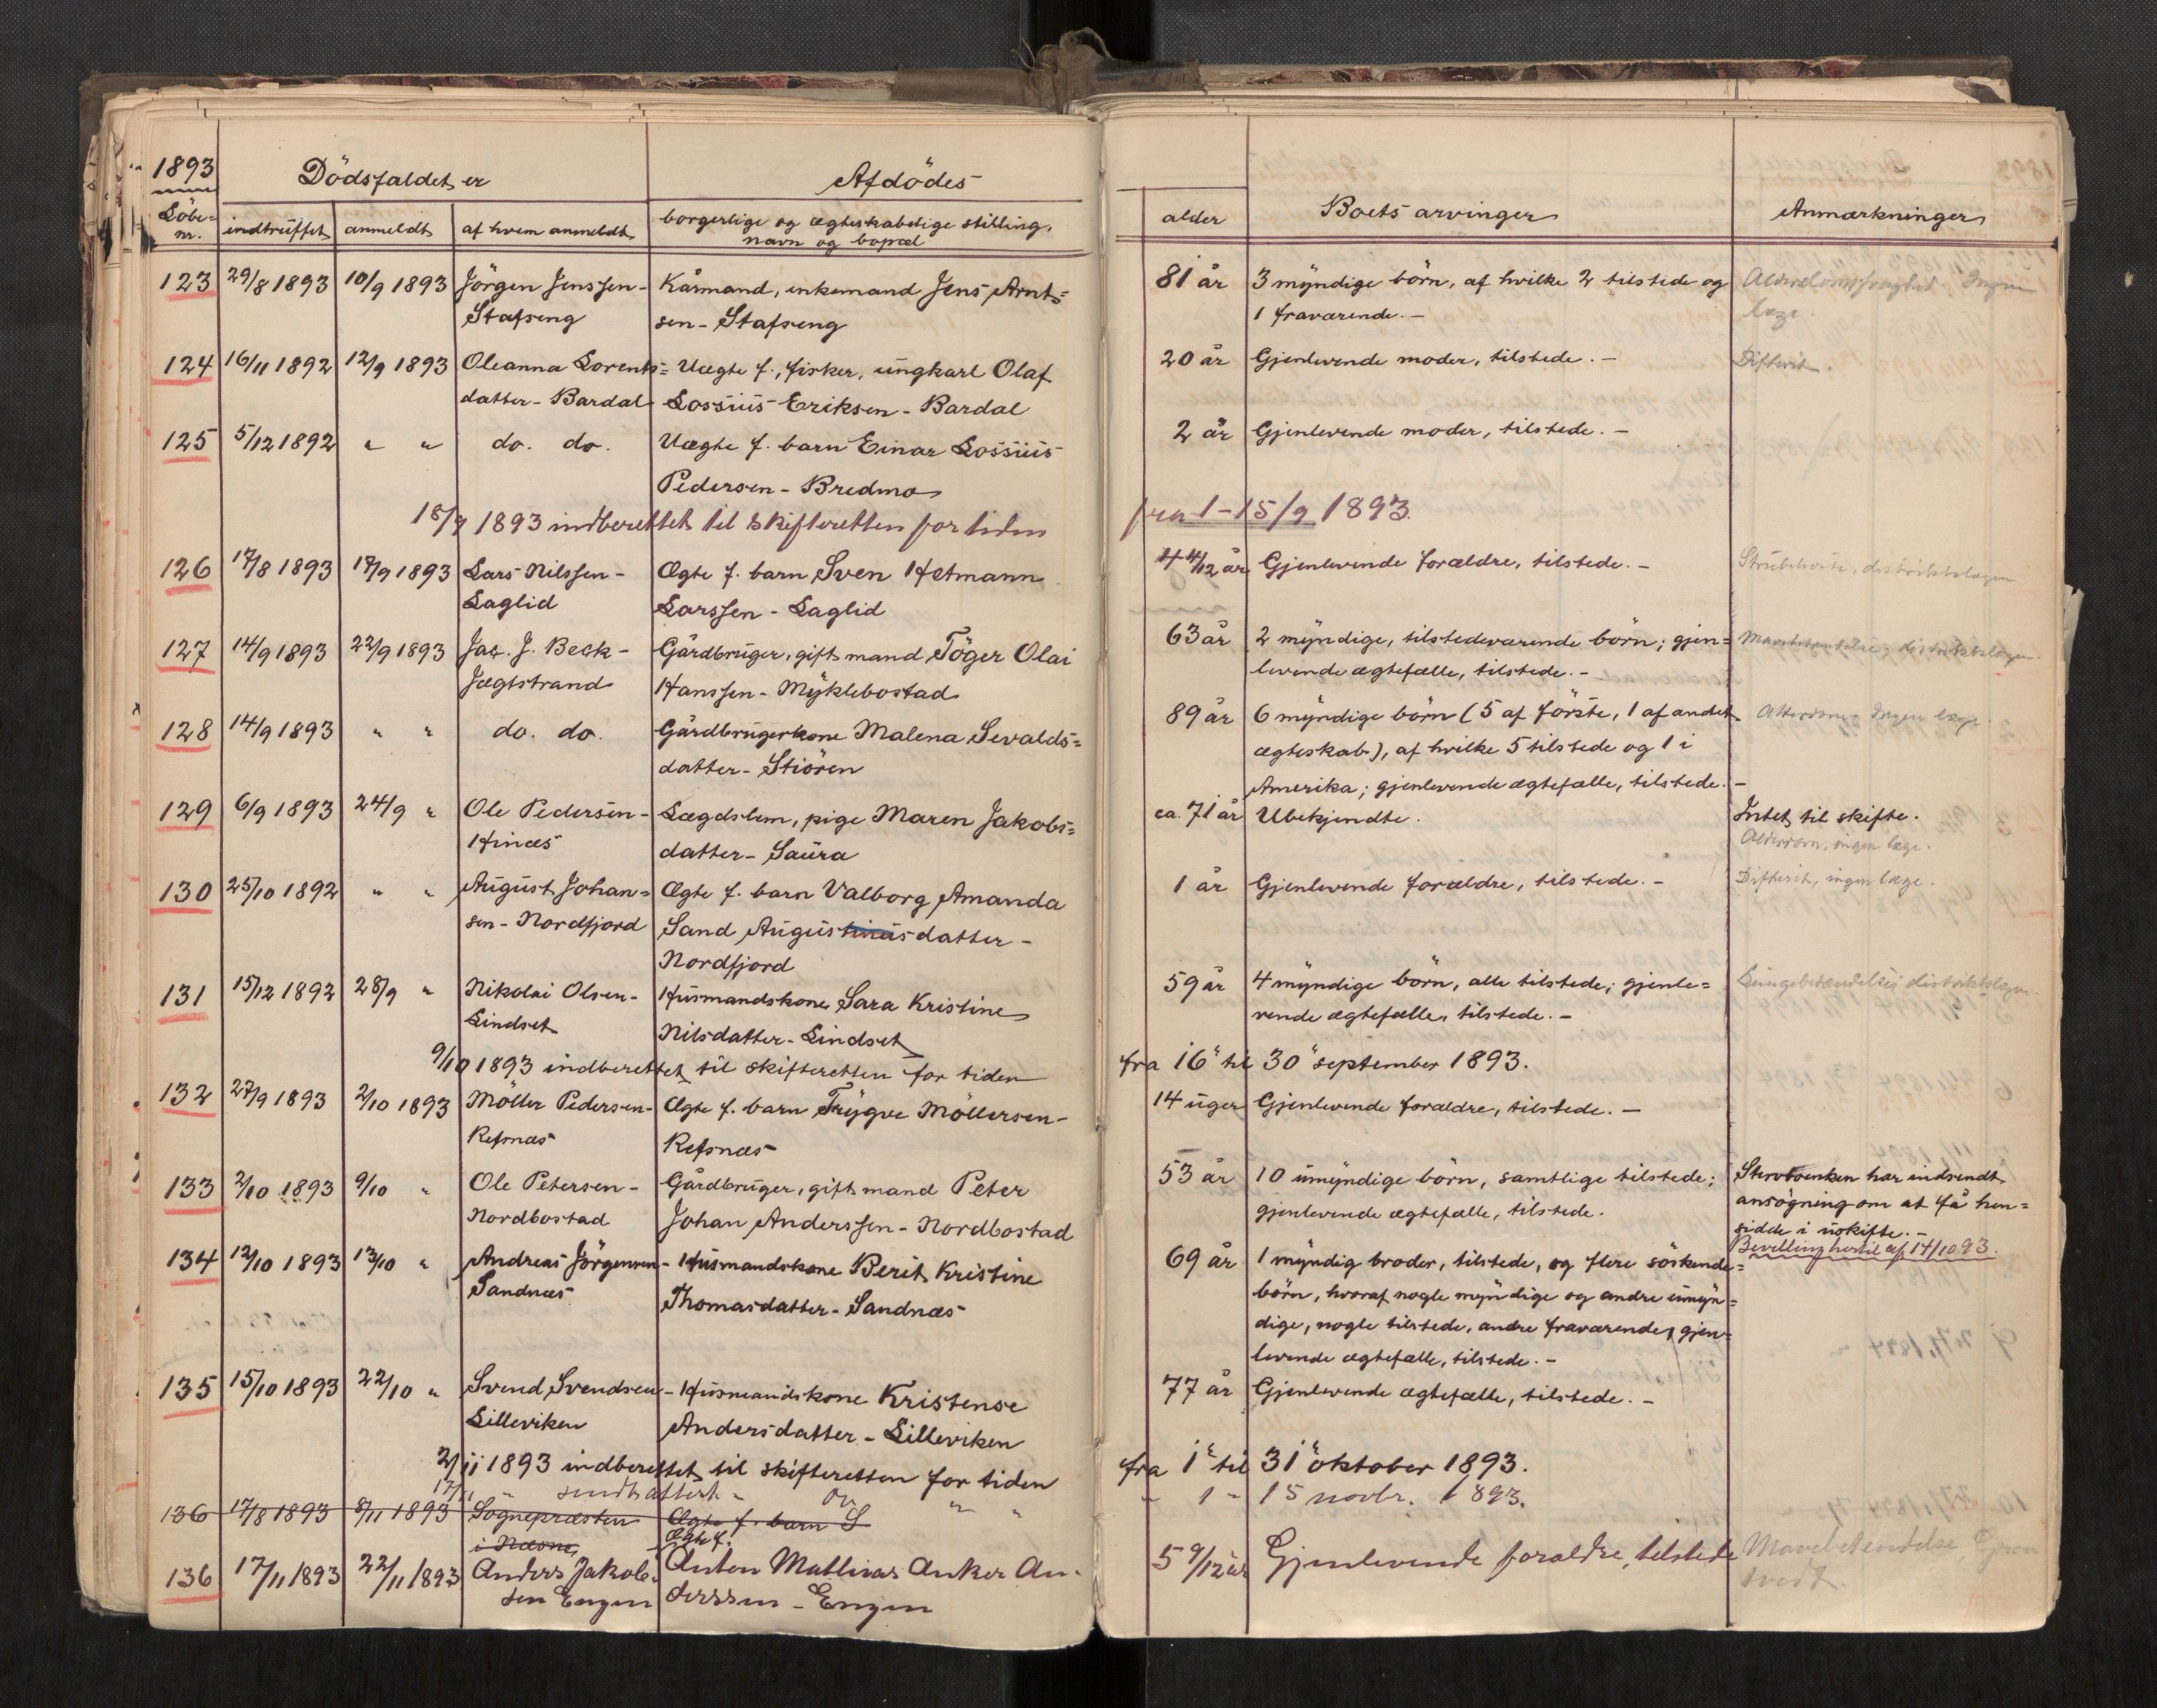 1893
Dödsfaldet er
Afdödes
Löbe=
nr.
indtruffet
anmeldt
af hvem anmeldt
borgerlige og ægteskabelige stilling,
navn og bopæl
alder
Boets arvinger
Anmærkninger
123 29/8 1893 10/9 1893 Jörgen Jenssen- Kårmand, enkemand Jens Arnt= 81 år 3 myndige börn, af hvilke 2 tilstede og Ingen
Stafseng sen- Stafseng 1 fraværende.- læge.
124 16/11 1892 12/9 1893 Oleanna Lorents= Uægte f., fisker, ungkarl Olaf 20 år Gjenlevende moder, tilstede.- Difterit.
datter- Bardal Lossius Eriksen- Bardal
125 5/12 1892 " " do. do. Uægte f. barn Einar Lossius 2 år Gjenlevende moder, tilstede.-
Pedersen- Bredmo
18/9 1893 indberettet til skifteretten for tiden fra 1-15/9 1893.
126 17/8 1893 17/9 1893 Lars Nilssen- Ægte f. barn Sven Hetmann 4 4/12 år Gjenlevende forældre, tilstede.- Strubehoste, distriktslægen
Laglid Larssen- Laglid
127 14/9 1893 22/9 1893 Jac. J. Beck- Gårdbruger, gift mand Töger Olai 63 år 2 myndige, tilstedeværende börn; gjen= distriktslægen.
Jægtstrand Hanssen- Myklebostad levende ægtefælle, tilstede.-
128 14/9 1893 " " do. do. Gårdbrugerkone Malena Sevalds= 89 år 6 myndige börn (5 af förste, 1 af andet Alderdom. Ingen læge.
datter- Stiören ægteskab), af hvilke 5 tilstede og 1 i
Amerika; gjenlevende ægtefælle, tilstede.-
129 6/9 1893 24/9 " Ole Pedersen- Lægdslem, pige Maren Jakobs= ca. 71 år Ubekjendte. Intet til skifte.
Hinæs datter- Saura Alderdom, ingen læge.
130 25/10 1892 " " August Johan= Ægte f. barn Valborg Amanda 1 år Gjenlevende forældre, tilstede.- Difterit, ingen læge.
sen- Nordfjord Sand Augustinusdatter-
Nordfjord
131 15/12 1892 28/9 " Nikolai Olsen- Husmandskone Sara Kristine 59 år 4 myndige börn, alle tilstede; gjenle= Lungebetændelse; distriktslægen.
Lindset Nilsdatter- Lindset vende ægtefælle, tilstede.-
9/10 1893 indberettet til skifteretten for tiden fra 16" til 30" september 1893.
132 27/9 1893 2/10 1893 Möller Pedersen- Ægte f. barn Trygve Möllersen- 14 uger Gjenlevende forældre, tilstede.-
Refsnæs Refsnæs
133 2/10 1893 9/10 " Ole Petersen- Gårdbruger, gift mand Peter 53 år 10 umyndige börn, samtlige tilstede; Stervboenken har indsendt
Nordbostad Johan Anderssen- Nordbostad gjenlevende ægtefælle, tilstede. ansögning om at få hen=
sidde i uskifte.-
Bevilling hertil af 14/10 93.
134 12/10 1893 13/10 " Andreas Jörgensen- Husmandskone Berit Kristine 69 år 1 myndig broder, tilstede, og flere söskende=
Sandnæs Thomasdatter- Sandnæs börn, hvoraf nogle myndige og andre umyn=
dige, nogle tilstede, andre fraværende, gjen=
levende ægtefælle, tilstede.-
135 15/10 1893 22/10 " Svend Svendsen- Husmandskone Kristense 77 år Gjenlevende ægtefælle, tilstede.-
Lilleviken Andersdatter- Lilleviken
2/11 1893 indberettet til skifteretten for tiden fra 1" til 31" oktober 1893.
17/11 " 1 - 15 novbr. 1893.
136 17/8 1893 8/11 1893 Sognepræsten Ægte f. barn S
i Næsne
Ægte f.
136 17/11 1893 22/11 1893 Anders Jakob= Anton Mathias Anker An- 5 9/12 år Gjenlevende forældre, tilstede Mavebetændelse,
sen Engen derssen- Engen